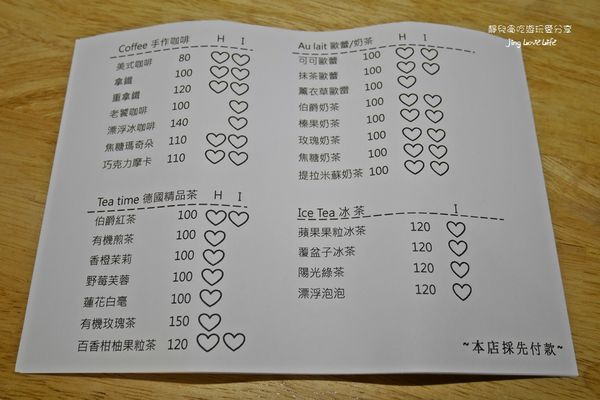 靜兒貪吃遊玩愛分享
Jing Love Life
Coffee 手作咖啡 H I
美式咖啡 80 ♡ ♡
拿鐵 100 ♡ ♡
重拿鐵 120 ♡ ♡
老饕咖啡 100 ♡
漂浮冰咖啡 140 ♡
焦糖瑪奇朵 110 ♡ ♡
巧克力摩卡 110 ♡ ♡
Tea time 德國精品茶 H I
伯爵紅茶 100 ♡ ♡
有機煎茶 100 ♡
香橙茉莉 100 ♡
野莓芙蓉 100 ♡
蓮花白毫 100 ♡
有機玫瑰茶 150 ♡
百香柑柚果粒茶 120 ♡ ♡
Au lait 歐蕾/奶茶 H I
可可歐蕾 100 ♡ ♡
抹茶歐蕾 100 ♡ ♡
薰衣草歐蕾 100 ♡
伯爵奶茶 100 ♡ ♡
榛果奶茶 100 ♡ ♡
玫瑰奶茶 100 ♡ ♡
焦糖奶茶 100 ♡ ♡
提拉米蘇奶茶 100 ♡ ♡
Ice Tea 冰 茶 I
蘋果果粒冰茶 120 ♡
覆盆子冰茶 120 ♡
陽光綠茶 120 ♡
漂浮泡泡 120 ♡
~本店採先付款~